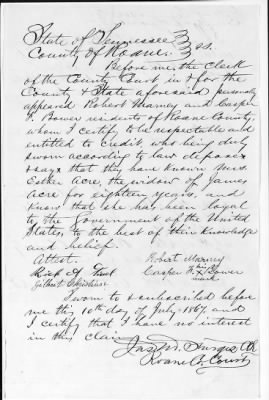 State of Tennessee }
County of Roane } ss.
Before me, the Clerk
of the County Court in & for the
County & State aforesaid personaly
appeared Robert Marney and Casper
F. Bower residents of Roane County,
whom I certify to be respectable and
entitled to credit who being duly
sworn according to law deposes
& says that they have known Mrs.
Esther Acre, the widow of James
Acre for eighteen years, and
know that she has been loyal
to the Government of the United
States, to the best of their knowledge
and belief.
Attest. Robert Marney
his
Casper F. X Bower
mark
Sworn to & subscribed before
me this 10th day of July 1867. and
I certify that I have no interest
in this claim
Clk
Roane Co. Court